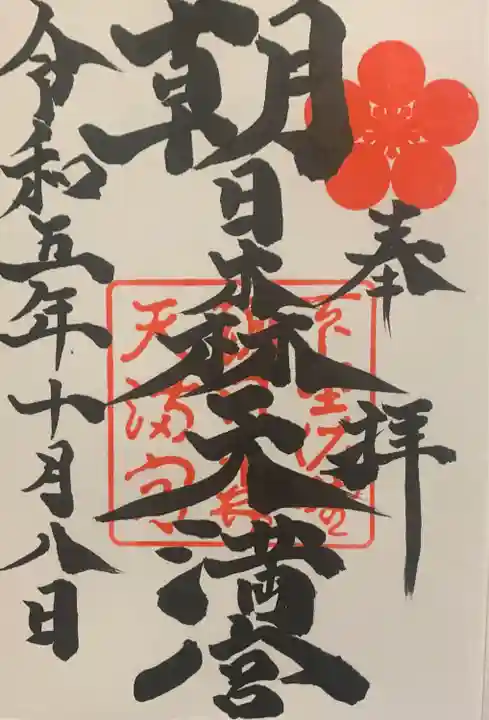 奉拝
朝日森天満宮
天満宮
令和五年十月八日